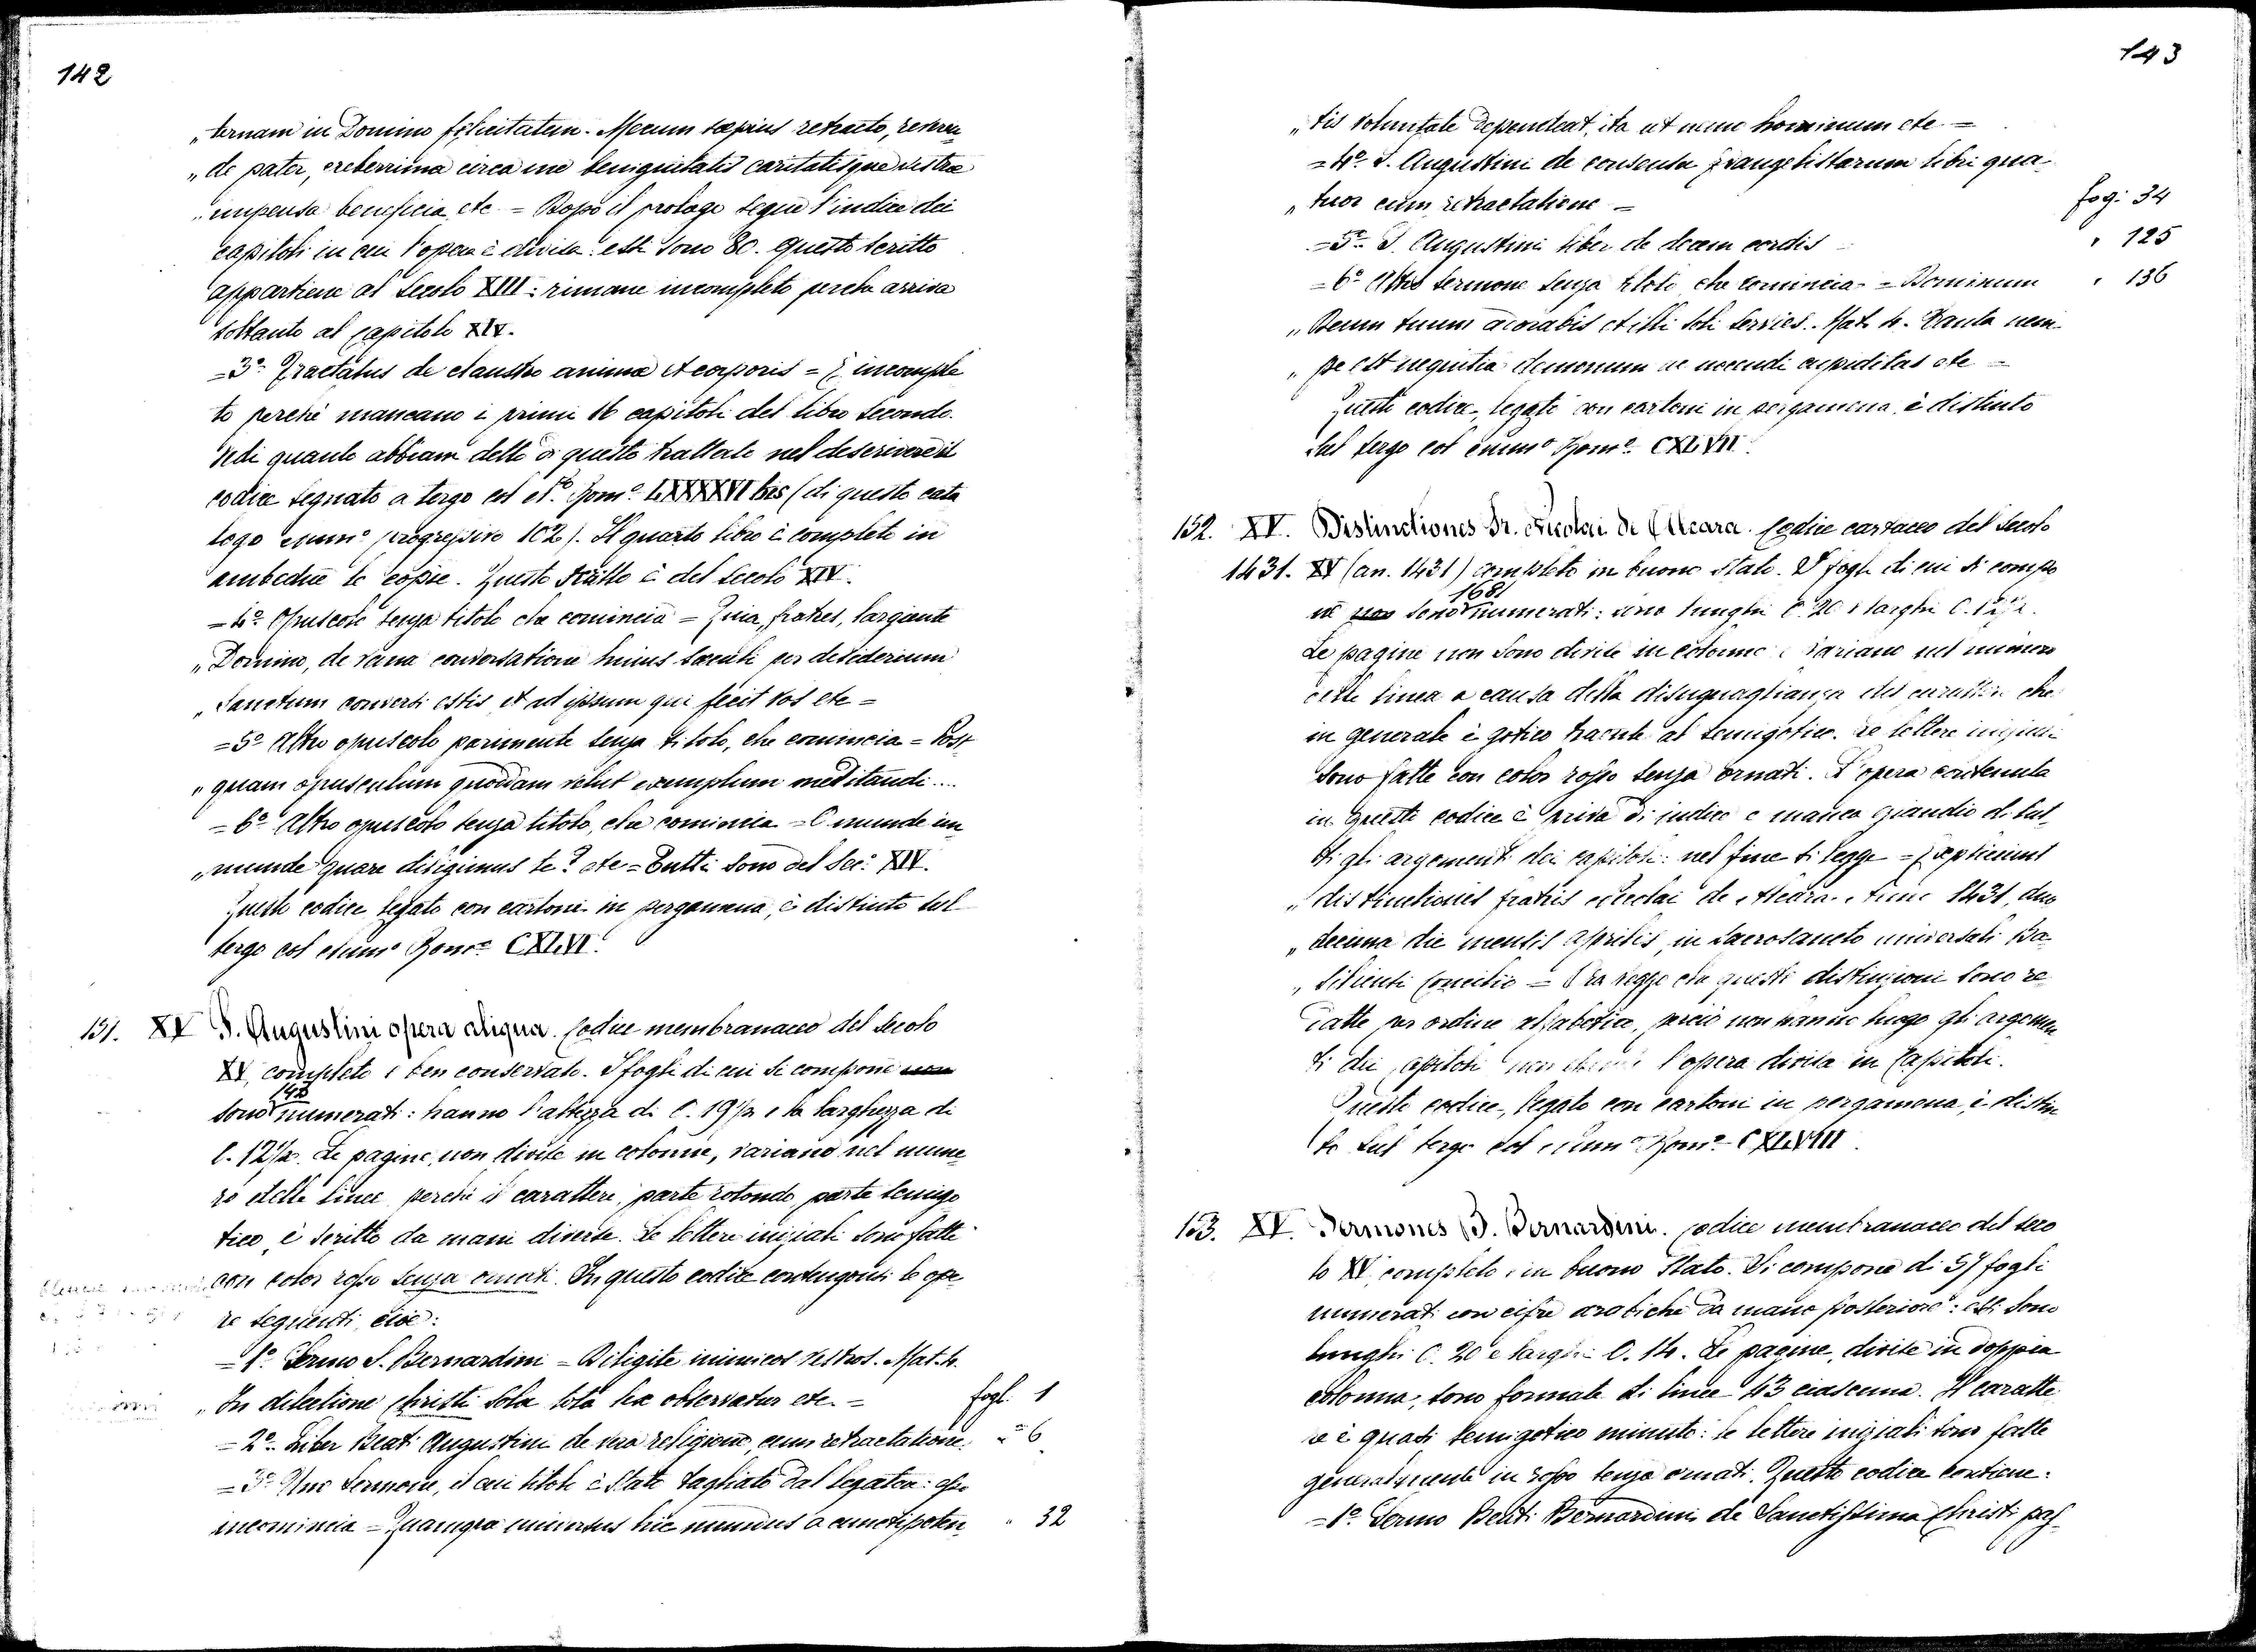 142
„ternam in Domino felicitatem. Mecum sæpius retracto, reveren
„de pater, creberrima circa me benignitatis caritatisque vestræ
„impensa beneficia etc = Dopo il prologo segue l'indice dei
capitoli in cui l'opera è divisa: essi sono 80. Questo scritto
appartiene al secolo XIII: rimane incompleto perchè arriva
soltanto al capitolo XIV.
= 3º Tractatus de claustro animæ et corporis = È incomple
to perchè mancano i primi 16 capitoli del libro secondo.
Vedi quanto abbiam detto di questo trattato nel descrivere il
codice segnato a tergo col Nº Romº LXXXXVI bis (di questo cata
logo numº progressivo 102). Il quarto libro è completo in
ambedue le copie. Questo scritto è del secolo XIV.
= 4º Opuscolo senza titolo che comincia = Quia, fratres, largiente
„Domino, de vana conversatione huius sæculi per desiderium
„Sanctum conversi estis et ad ipsum qui fecit vos etc =
= 5º Altro opuscolo parimente senza titolo, che comincia = Post
„quam opusculum quoddam velut exemplum meditandi....
= 6º Altro opuscolo senza titolo, che comincia = O munde im
„munde quare diligimus te? etc = Tutti sono del Sec: XIV.
Questo codice legato con cartoni in pergamena, è distinto sul
tergo col numº Romº CXLVI.
151. XV S. Augustini opera aliqua. Codice membranaceo del secolo
XV, completo e ben conservato. I fogli di cui si compone non
sono 142 numerati: hanno l'altezza di C. 19½ e la larghezza di
C. 12½. Le pagine, non divise in colonne, variano nel nume
ro delle linee perchè il carattere, parte rotondo parte semigo
tico, è scritto da mani diverse. Le lettere iniziali sono fatte
con color rosso senza ornati. In questo codice contengonsi le ope
re seguenti, cioè:
= 1º Sermo S. Bernardini = Diligite inimicos vestros. Mat. 4.
„In dilectione Christi sola tota lex observatur etc. = fogl. 1
= 2º Liber Beati Augustini de vera religione, cum retractatione „= 6
= 3º Uno Sermone, il cui titolo è stato tagliato dal legatore: esso
incomincia = Quamquam universus hic mundus a cunctipoten „ 32
143
„tis voluntate dependeat, ita ut nemo hominum etc =
= 4º S. Augustini de consensu Evangelistarum libri qua
„tuor cum retractatione = fog: 34
= 5º S. Augustini liber de decem cordis „ 125
= 6º Altro sermone senza titolo che comincia = Dominum „ 136
„Deum tuum adorabis et illi soli servies. Mat. 4. Tanta nem
„pe est nequitia demonum ac nocendi cupiditas etc =
Questo codice, legato con cartoni in pergamena, è distinto
sul tergo col numº Romº CXLVII.
152. XV. Distinctiones Fr. Nicolai de Alcara. Codice cartaceo del secolo
1431. XV (an. 1431) completo in buono stato. I fogli di cui si compo
ne non sono 168 numerati: sono lunghi C. 20 e larghi C. 12½.
Le pagine non sono divise in colonne e variano nel numero
delle linee a causa della disuguaglianza del carattere che
in generale è gotico traente al semigotico. Le lettere iniziali
sono fatte con color rosso senza ornati. L'opera contenuta
in questo codice è priva di indice e manca eziandio di tut
ti gli argomenti dei capitoli: nel fine si legge = Expliciunt
„distinctiones fratris Nicolai de Alcara. Anno 1431, duo
„decima die mensis Aprilis, in Sacrosancto universali Ba
„siliensi Concilio = Ora legge che queste distinzioni sono re
datte per ordine alfabetico, perciò non hanno luogo gli argomen
ti dei capitoli non l'opera divisa in Capitoli.
Questo codice, legato con cartoni in pergamena, è distin
to sul tergo col numº Romº CXLVIII.
153. XV. Sermones B. Bernardini. Codice membranaceo del seco
lo XV, completo e in buono stato. Si compone di 57 fogli
numerati con cifre arabiche da mano posteriore: essi sono
lunghi C. 20 e larghi C. 14. Le pagine, divise in doppia
colonna, sono formate di linee 43 ciascuna. Il caratte
re è quasi semigotico minuto: le lettere iniziali sono fatte
generalmente in rosso senza ornati. Questo codice contiene:
= 1º Sermo Beati Bernardini de Sanctissima Christi pas